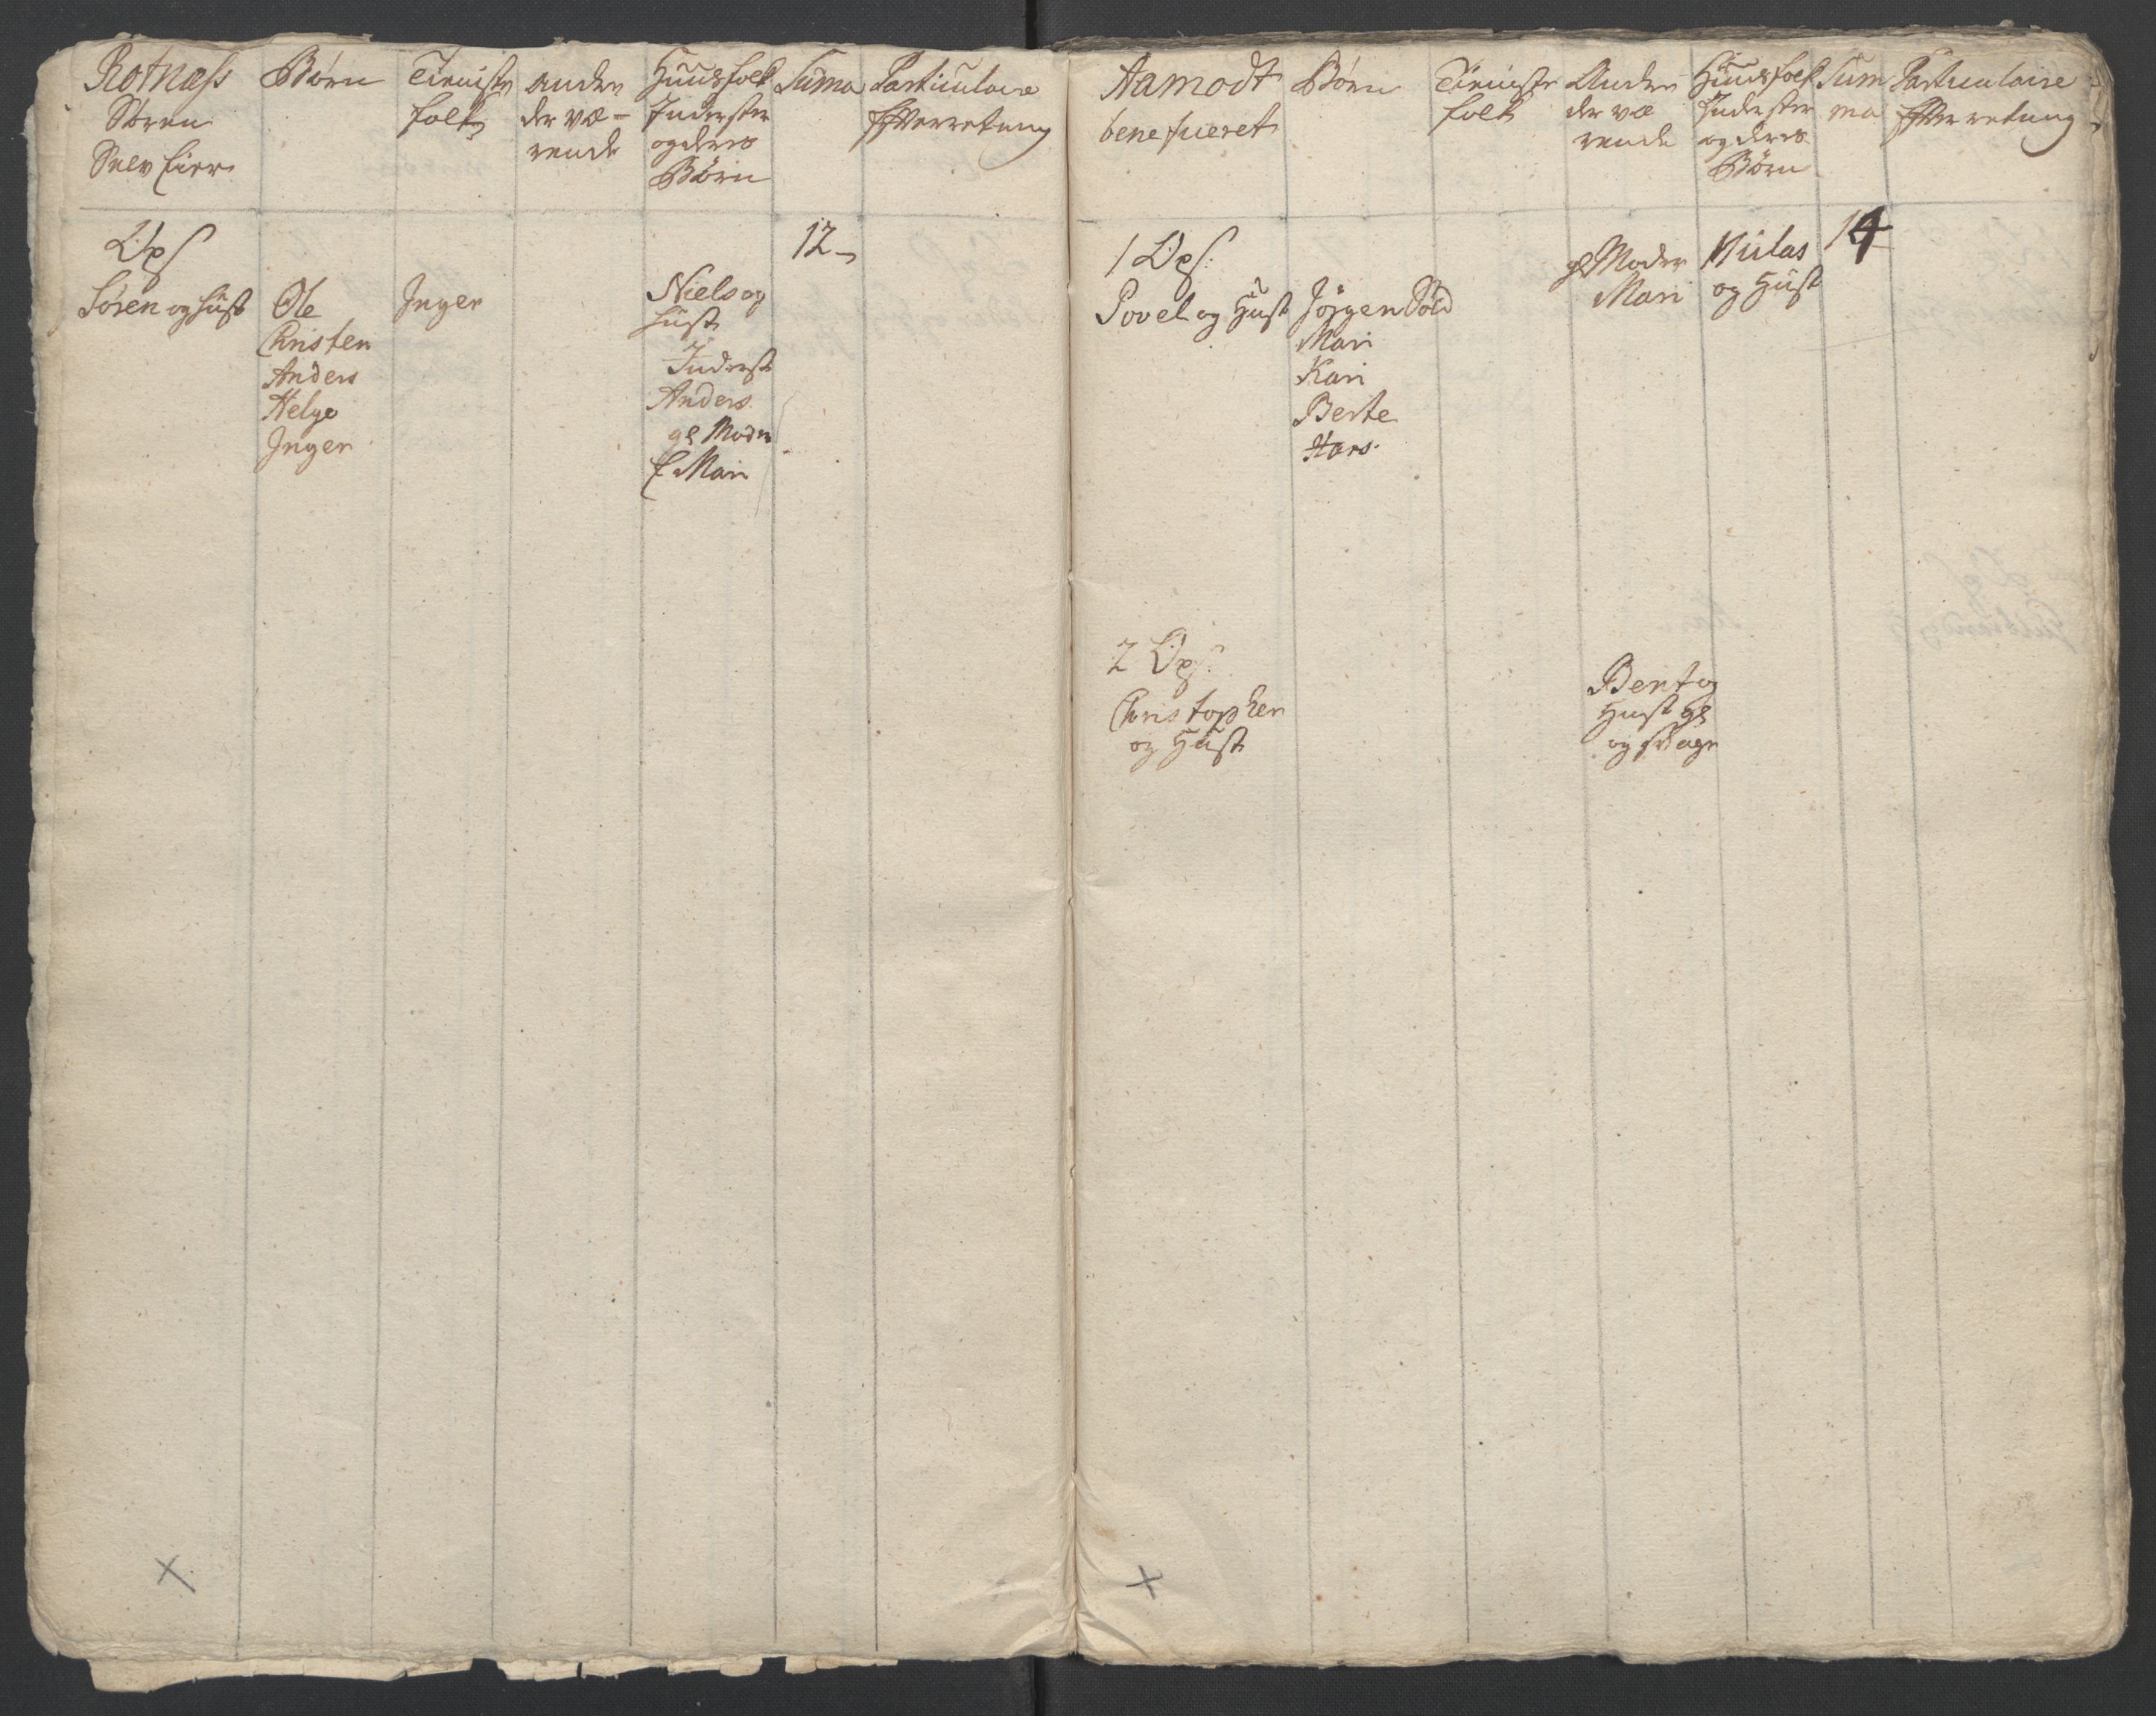 Rotnæss
Søren
Selv Eier
Børn
Tieniste
folk
Andre
der væ-
rende
Huusfolk
Inderster
og deres
Børn
Suma
Particulaire
Efterretning
Ops
Søren og Hust
Ole
Christen
Anders
Helge
Inger
Inger
Niels og
Hust
Inderst
Anders
gl Moder
E Mari
12
Aamodt
beneficeret
Børn
Tieniste
folk
Andre
der væ
rende
Huusfolk
Inderster
og deres
Børn
Sum
ma
Particulaire
Efterretning
1 Ops:
Povel og Hust
Jørgen Sold
Mari
Kari
Berte
Hans
gl Moder
Mari
Nilas
og Hust
14
2 Ops:
Christopher
og Hust
Bent og
Hust gl
og svage